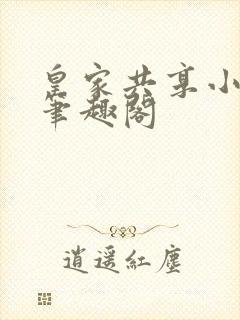 皇家共享小
笔趣阁
逍遥紅塵